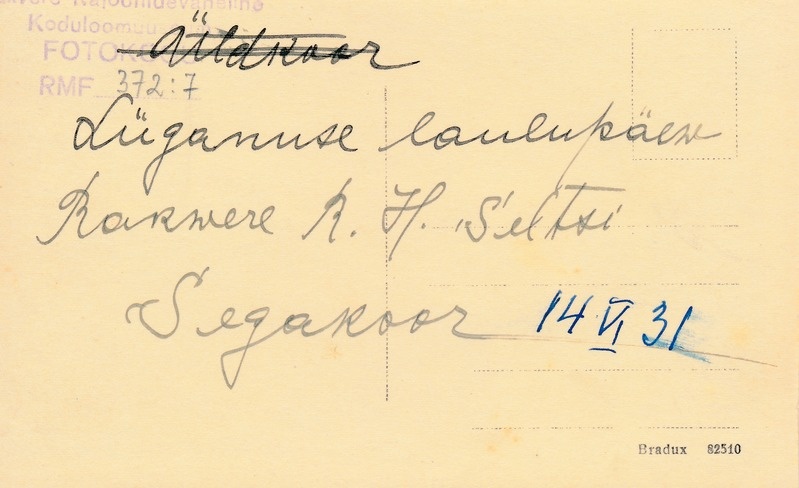 Rajoonidevaheline
Koduloomuu
FOTOKO
RMF 372:7
Üldkoor
Lüganuse laulupäew
Rakwere R. H. Seltsi
Segakoor 14 VI 31
Bradux 82510